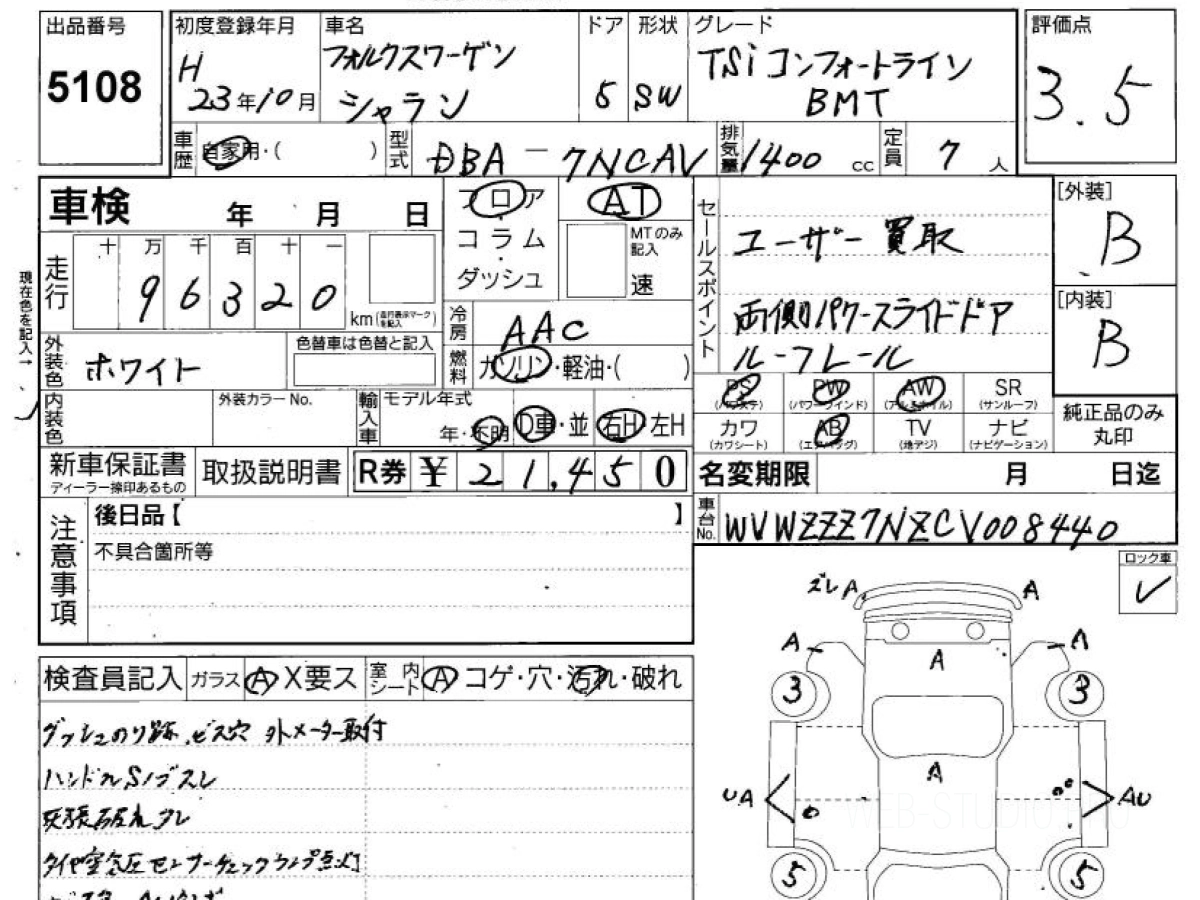 出品番号
5108
初度登録年月
H
23年10月
車名
フォルクスワーゲン
シャラン
ドア
5
形状
SW
グレード
TSi コンフォートライン
BMT
評価点
3.5
車歴
自家用・( )
型式
DBA - 7NCAV
排気量
1400 cc
定員
7 人
車検
年 月 日
フロア
・
コラム
・
ダッシュ
AT
MTのみ
記入
速
セールスポイント
ユーザー 買取
両側パワースライドドア
ルーフレール
[外装]
B
[内装]
B
現在色を記入→
走行
十 万 千 百 十 一
9 6 3 2 0
km(走行表示マークを記入)
冷房
AAC
外装色
ホワイト
色替車は色替と記入
燃料
ガソリン・軽油・( )
内装色
外装カラー No.
輸入車
モデル年式
年・不明
D車・並
右H 左H
PS
(パワステ)
PW
(パワーウインド)
AW
(アルミホイル)
SR
(サンルーフ)
カワ
(カワシート)
AB
(エアバッグ)
TV
(地デジ)
ナビ
(ナビゲーション)
純正品のみ
丸印
新車保証書
ディーラー捺印あるもの
取扱説明書
R券 ¥ 21,450
名変期限 月 日迄
注意事項
後日品【 】
不具合箇所等
車台No.
WVWZZZ7NZCV008440
ロック車
✓
検査員記入
ガラス
A X要ス
室内
シート
A コゲ・穴・汚れ・破れ
ダッシュのり跡 ビス穴 外メーター取付
ハンドルSノブスレ
天張破れ タレ
タイヤ空気圧センサーチェックランプ点灯
ズレA
A
A
A
A
3
3
A
UA
AU
5
5
WEB-STUDIO.PRO